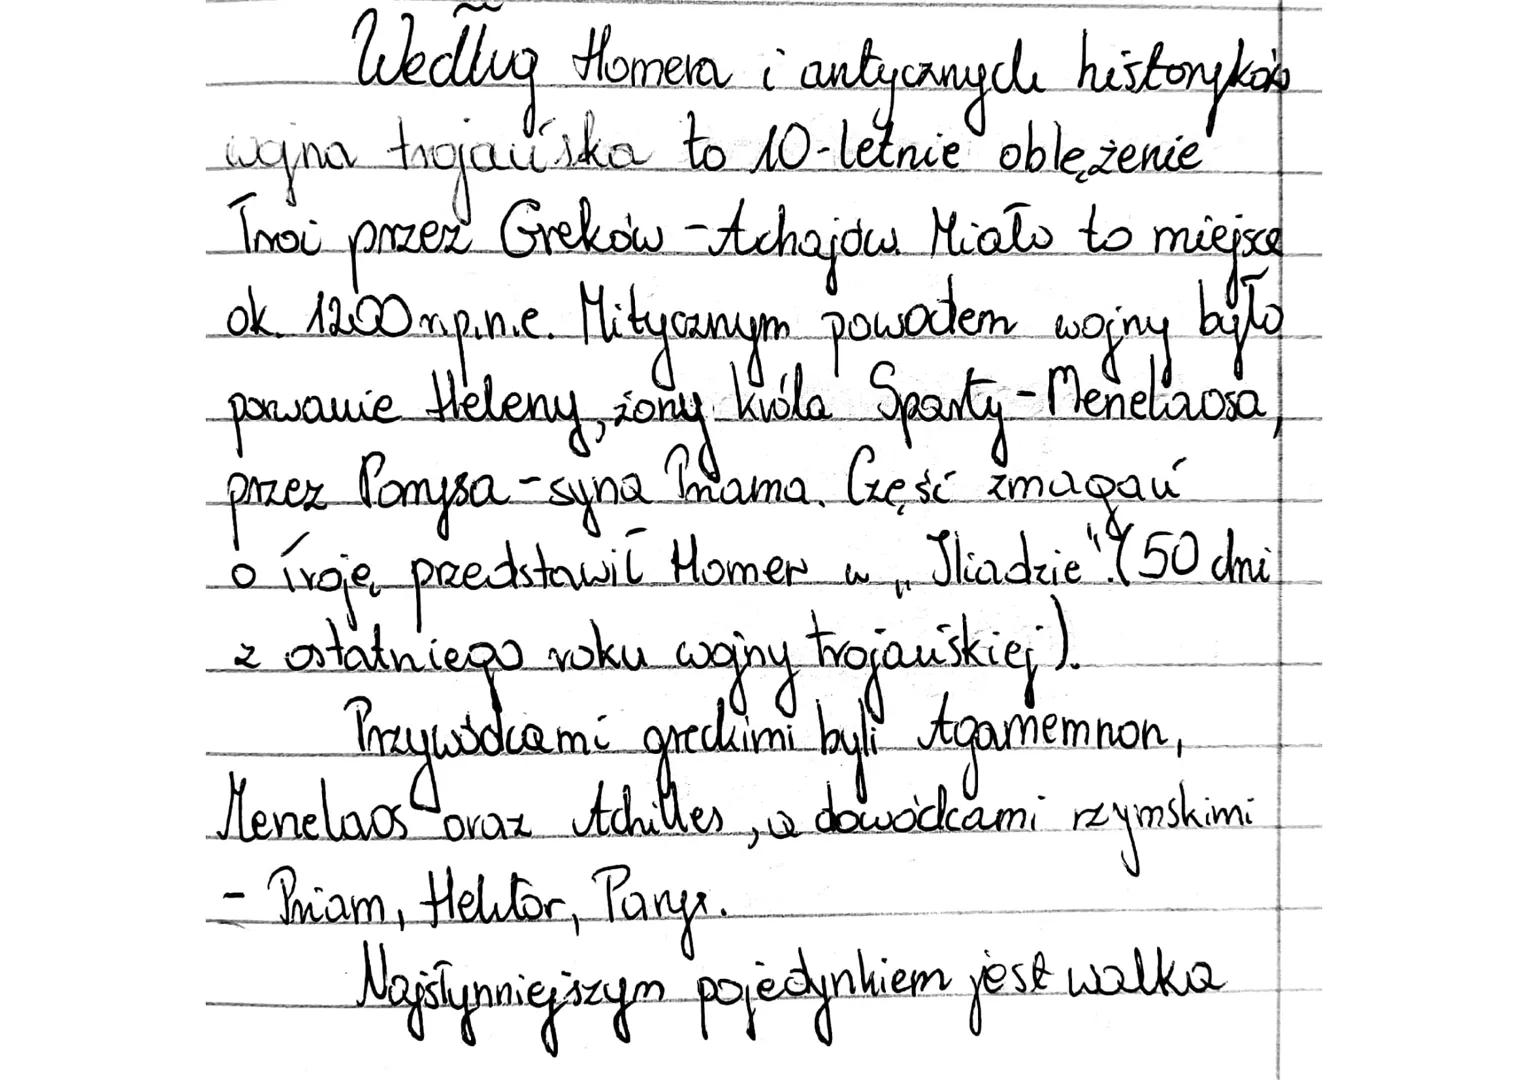 Według Homera i antycznych historyków
wojna trojańska to 10-letnie oblężenie
Troi przez Greków - Achajów. Miało to miejsce
ok. 1200 r.p.n.e. Mitycznym powodem wojny było
porwanie Heleny, żony króla Sparty - Menelaosa,
przez Parysa - syna Priama. Część zmagań
o Troję przedstawił Homer w „Iliadzie". (50 dni
z ostatniego roku wojny trojańskiej).
Przywódcami greckimi byli Agamemnon,
Menelaos oraz Achilles, a dowódcami rzymskimi
- Priam, Hektor, Parys.
Najsłynniejszym pojedynkiem jest walka